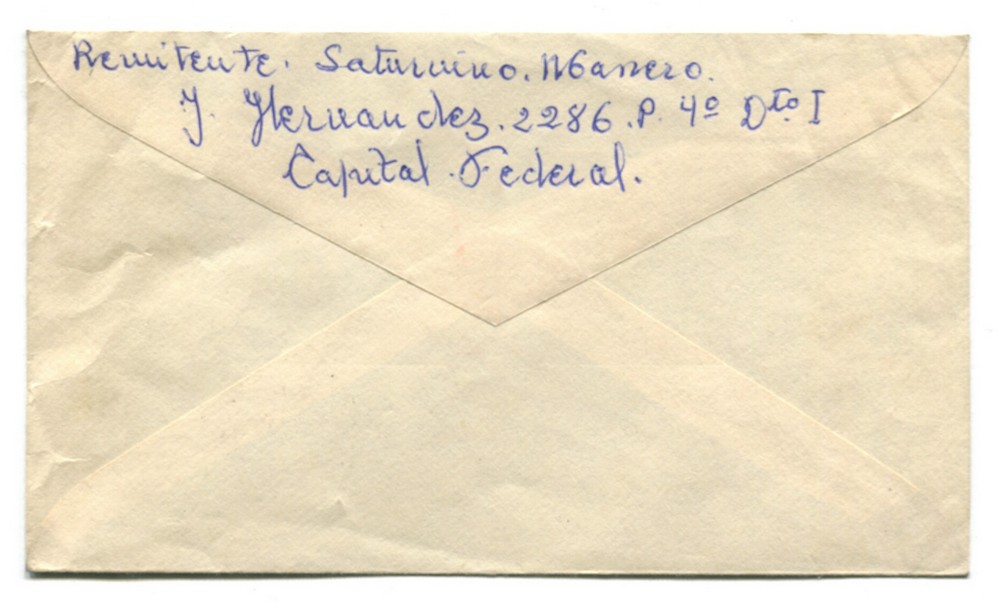 Remitente. Saturnino. Manero.
J. Hernandez. 2286. P. 4º Dto. I
Capital Federal.